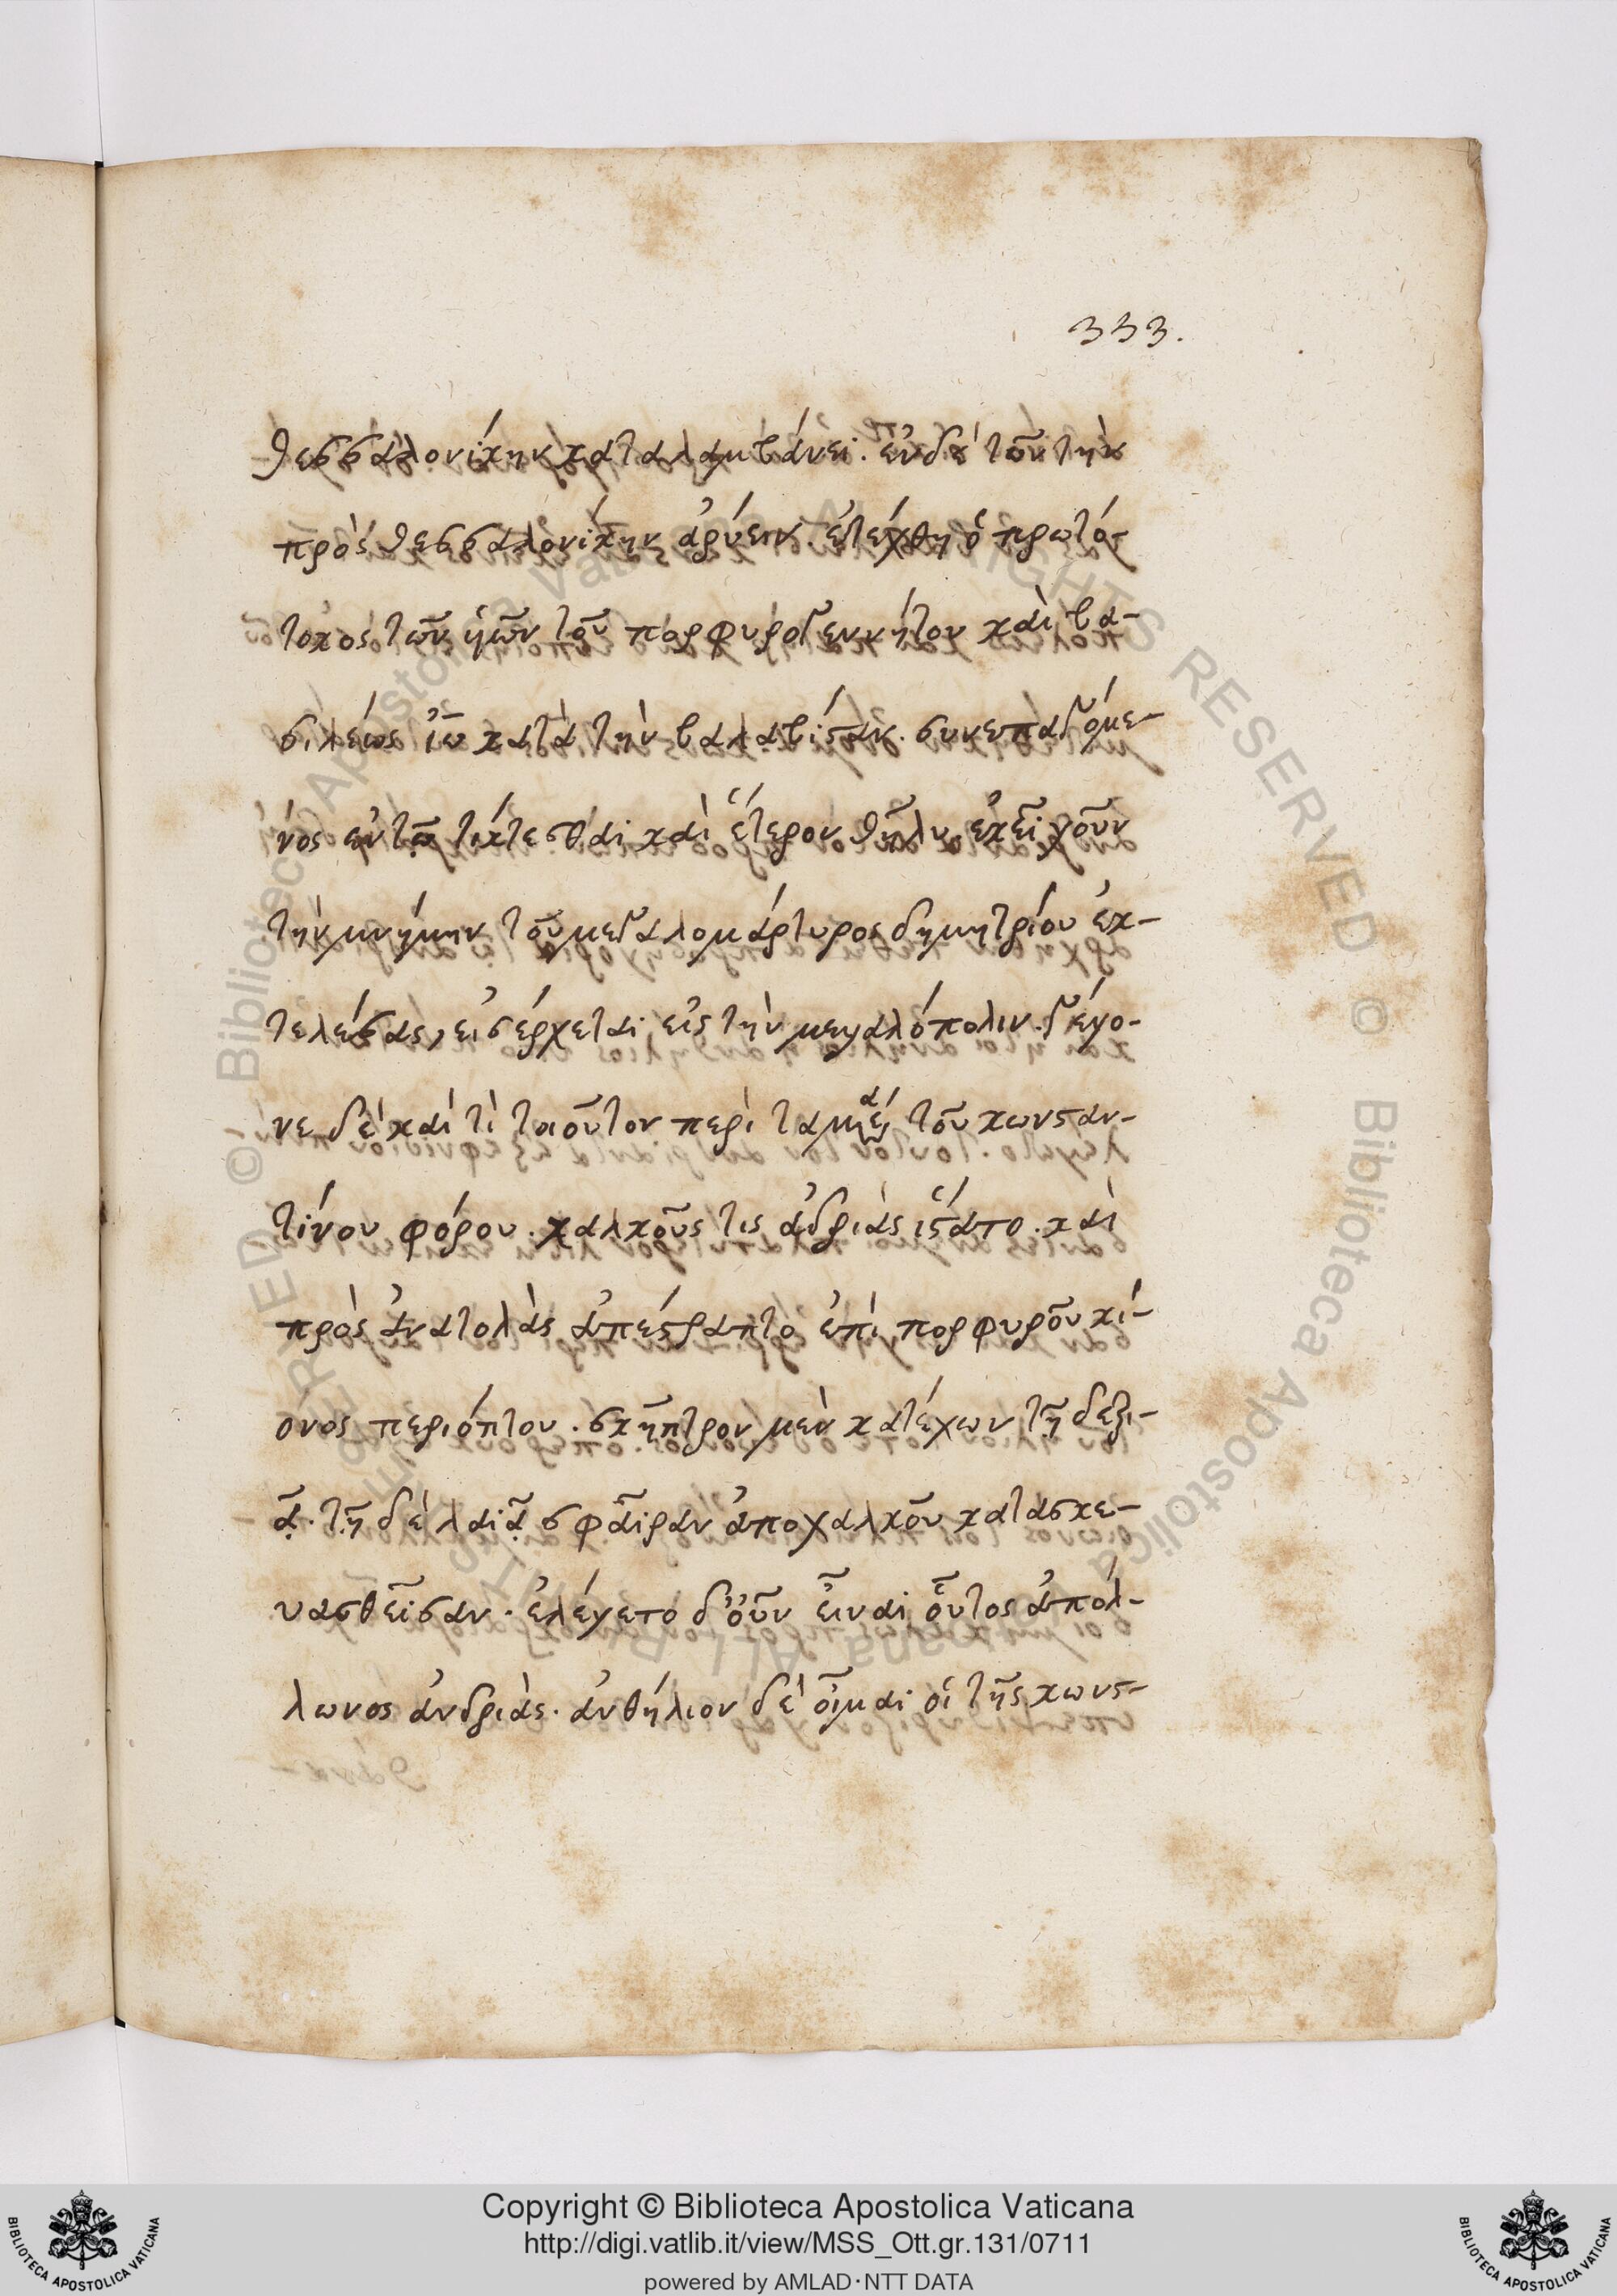 333.
θεσσαλονίκην καταλαμβάνει. ἐν δὲ τῶ τὴν
πρὸς θεσσαλονίκην ἀφύειν ἐτέχθη ὁ πρωτό-
τοκος τῶν ὑιῶν τοῦ πορφυρογεννήτου καὶ βα-
σιλέως ἰω κατὰ τὴν βαλαβίσταν. συνεπαγόμε-
νος ἐν τῶ τίκτεσθαι καὶ ἕτερον θῆλυ. ἐκεῖ γοῦν
τὴν μνήμην τοῦ μεγαλομάρτυρος δημητρίου ἐκ-
τελέσας, εἰσέρχεται εἰς τὴν μεγαλόπολιν. γέγο-
νε δὲ καί τι τοιοῦτον περὶ τὰ μέσα τοῦ κωνσταν-
τίνου φόρου. χαλκοῦς τις ἀδριὰς ἵστατο. καὶ
πρὸς ἀνατολὰς ἀπέστραπτο ἐπὶ πορφυροῦ κί-
ονος περιόπτου. σκῆπτρον μὲν κατέχων τῆ δεξι-
ᾷ. τῇ δὲ λαιᾷ σφαῖραν ἀπὸ χαλκοῦ κατασκε-
υασθεῖσαν. ἐλέγετο δ' οὖν εἶναι οὗτος ἀπόλ-
λωνος ἀνδριάς. ἀνθήλιον δὲ οἶμαι οἱ τῆς κωνσ-
Copyright © Biblioteca Apostolica Vaticana
http://digi.vatlib.it/view/MSS_Ott.gr.131/0711
powered by AMLAD·NTT DATA
BIBLIOTECA APOSTOLICA VATICANA
BIBLIOTECA APOSTOLICA VATICANA